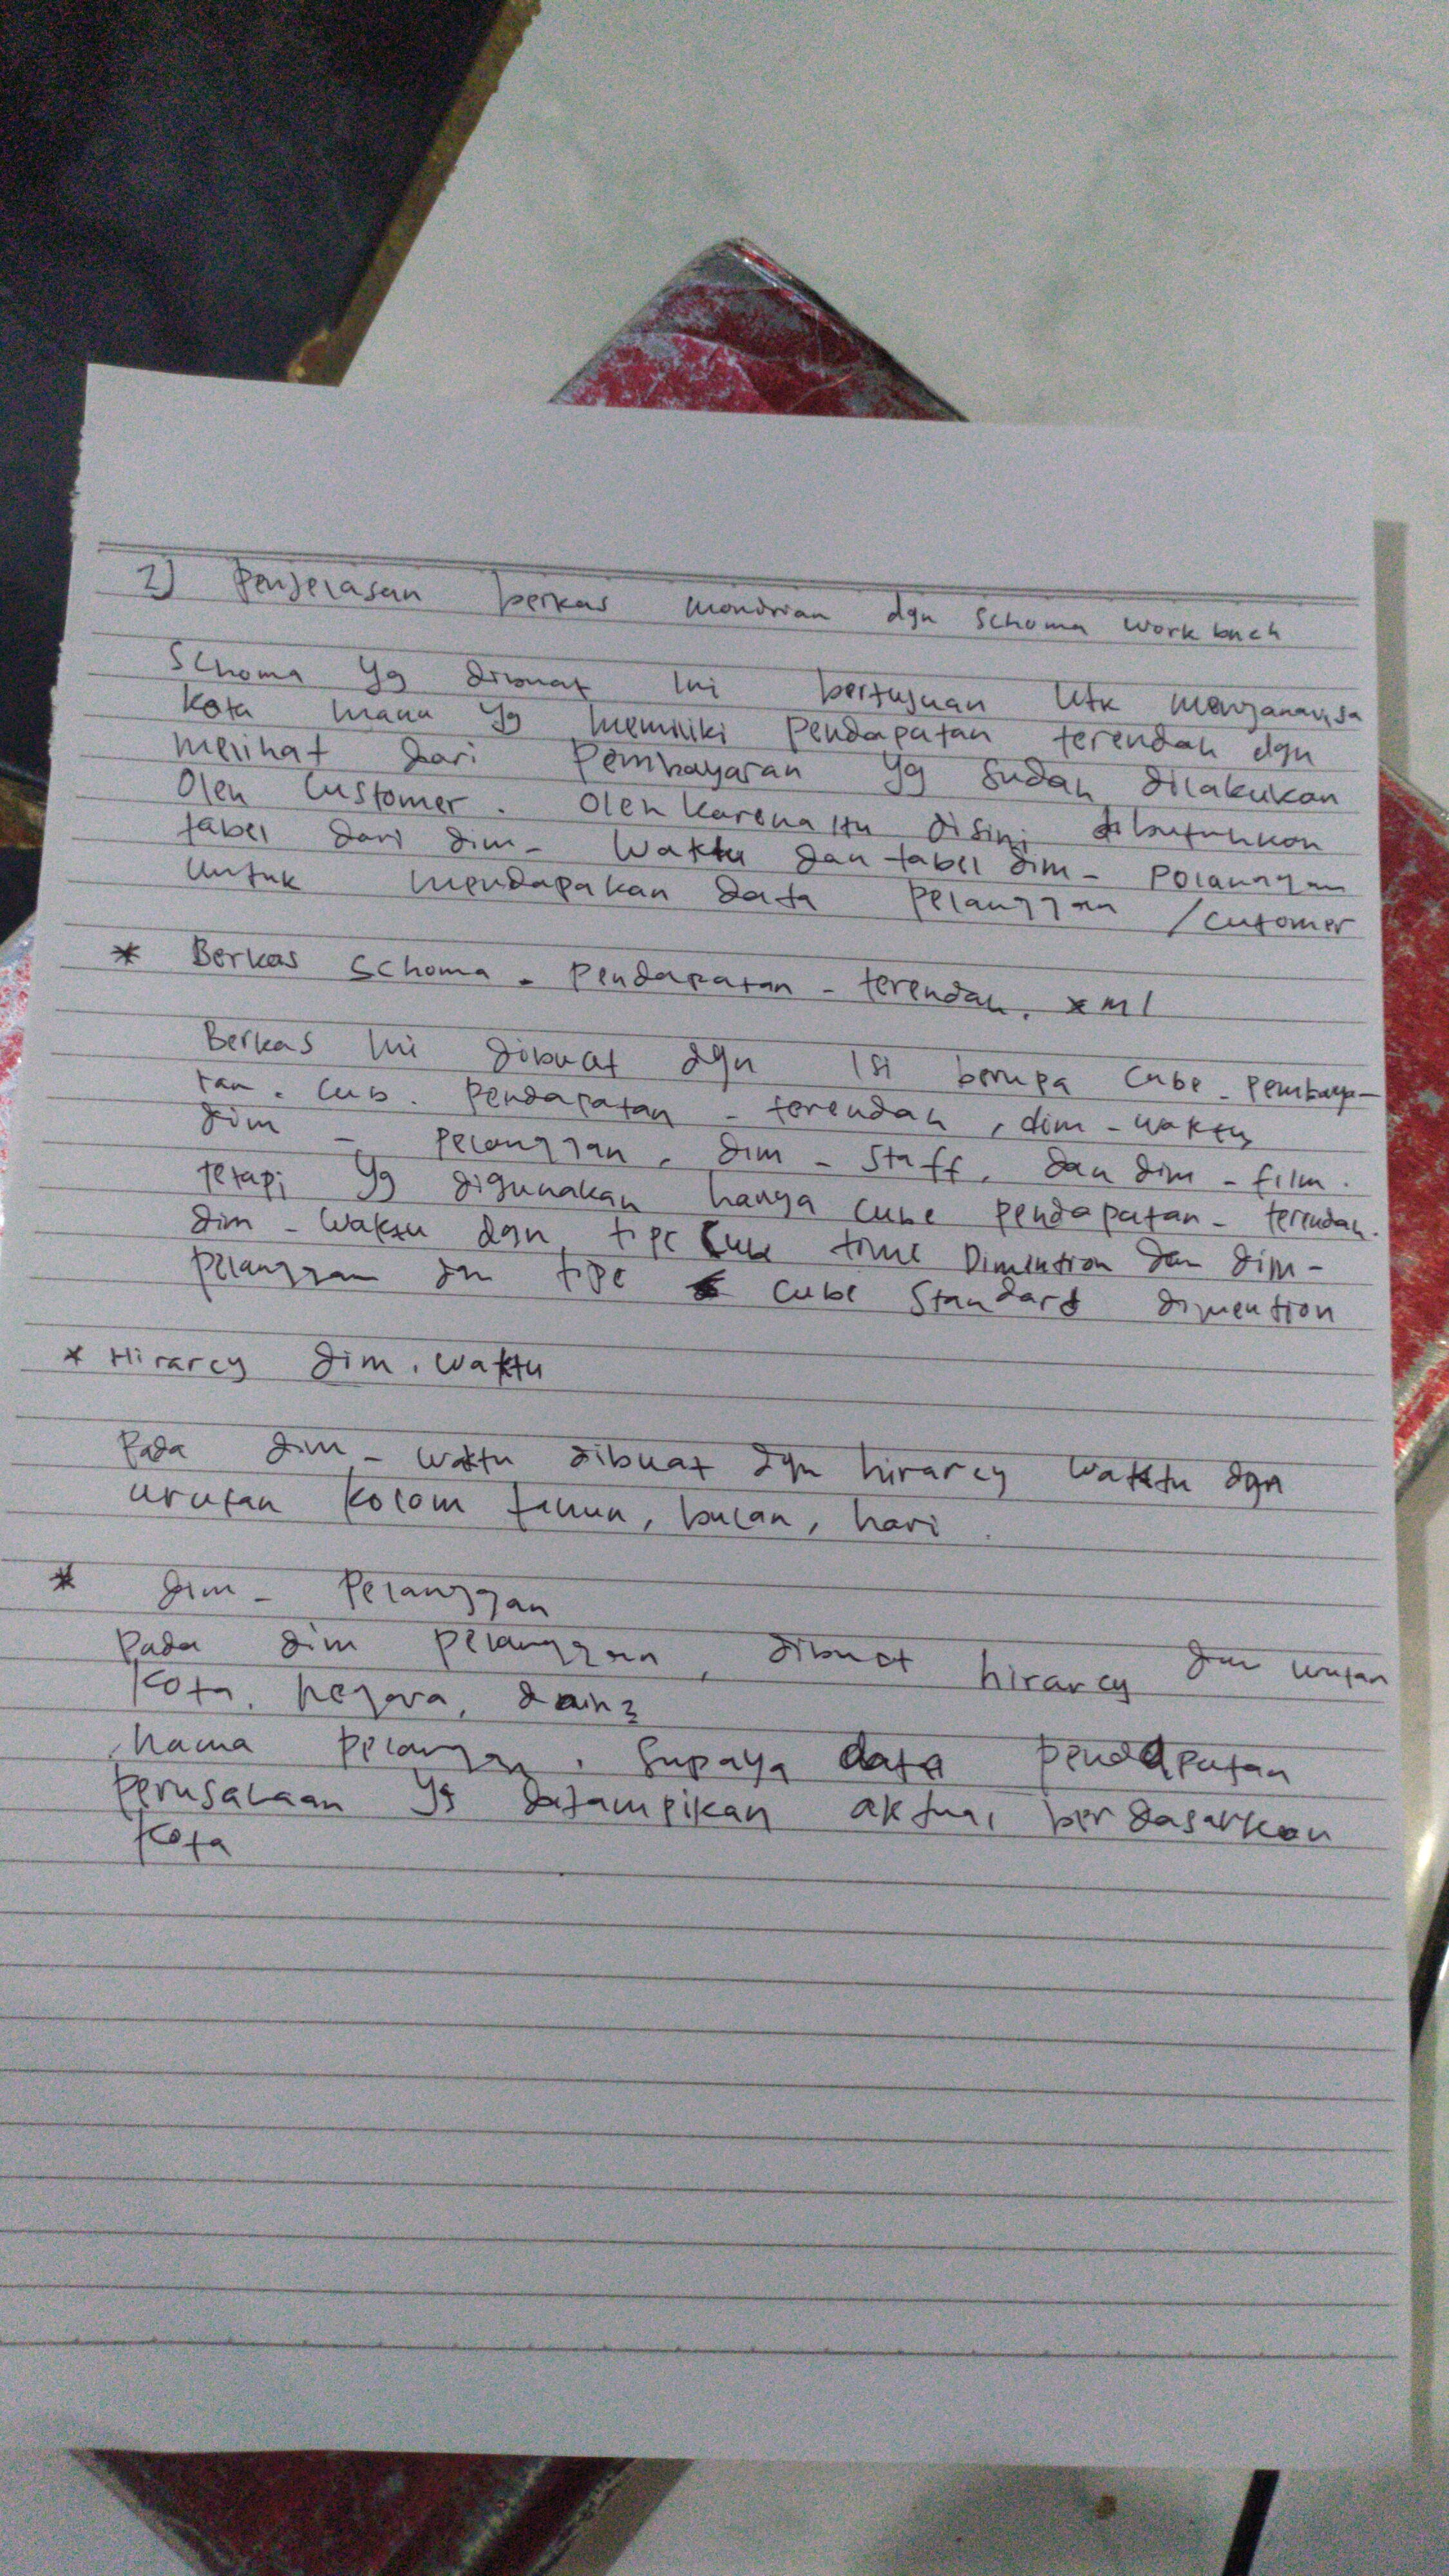 2) Penjelasan berkas mondrian dgn schoma work
Schoma yg dibuat ini bertujuan utk menganalisa
kota mana yg memiliki pendapatan terendah dgn
melihat dari Pembayaran yg sudah dilakukan
Oleh Customer. Oleh karena itu disini dibutuhkan
tabel dari dim - waktu dan tabel dim - Polanggan
untuk mendapakan data pelanggan / cutomer
* Berkas schoma - pendapatan - terendah. xml
Berkas ini dibuat dgn isi berupa cube - pembaya-
ran. cub. pendapatan - terendah, dim - waktu,
dim - pelanggan, dim - staff, dan dim - film.
tetapi yg digunakan hanya cube pendapatan - terendah.
dim - waktu dgn tipe Cube time Dimention dan dim -
pelanggan dn tipe cube Standard dimention
* Hirarcy dim. waktu
Pada dim - waktu dibuat dgn hirarcy waktu dgn
urutan kolom tahun, bulan, hari.
* dim - Pelanggan
Pada dim pelanggan, dibuat hirarcy dn urutan
kota, negara, dan
nama pelanggan, supaya data pendapatan
perusahaan yg datampikan aktual berdasarkan
kota